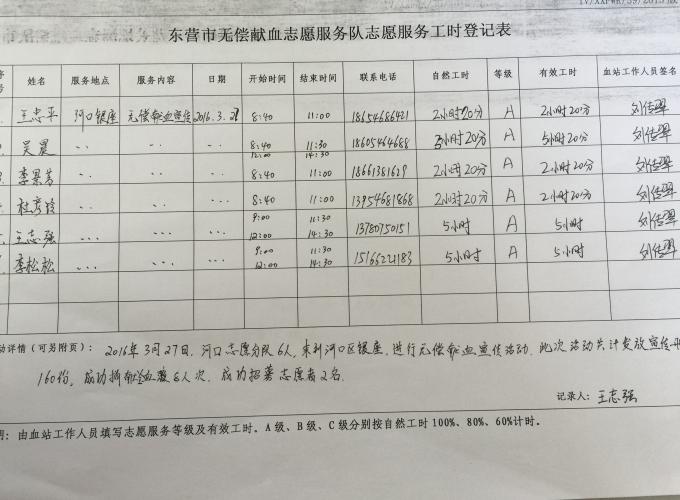 东营市无偿献血志愿服务队志愿服务工时登记表
姓名 服务地点 服务内容 日期 开始时间 结束时间 联系电话 自然工时 等级 有效工时 血站工作人员签名
王志平 河口银座 无偿献血宣传 2016.3.27 8:40 11:00 18654686421 2小时20分 A 2小时20分 刘传翠
吴晨 8:40 11:30 18605464688 5小时20分 A 5小时20分 刘传翠
12:00 14:30
李景芳 8:40 11:00 18661381629 2小时20分 A 2小时20分 刘传翠
杜彦玲 8:40 11:00 13954681868 2小时20分 A 2小时20分 刘传翠
9:00 11:30
王志强 12:00 14:30 13780750151 5小时 A 5小时 刘传翠
李松松 9:00 11:30 15166221183 5小时 A 5小时 刘传翠
12:00 14:30
动详情(可另附页): 2016年3月27日,河口志愿分队6人,来到河口区银座,进行无偿献血宣传活动,此次活动共计发放宣传册
160份,成功捐献血液8人次,成功招募志愿者2名.
记录人: 王志强
明:由血站工作人员填写志愿服务等级及有效工时。A级、B级、C级分别按自然工时100%、80%、60%计时。